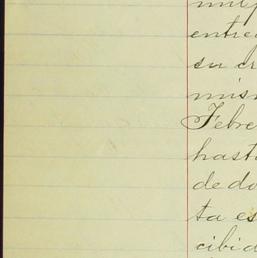 entre
su cr
mism
Febre
hast
de do
ta es
cibid